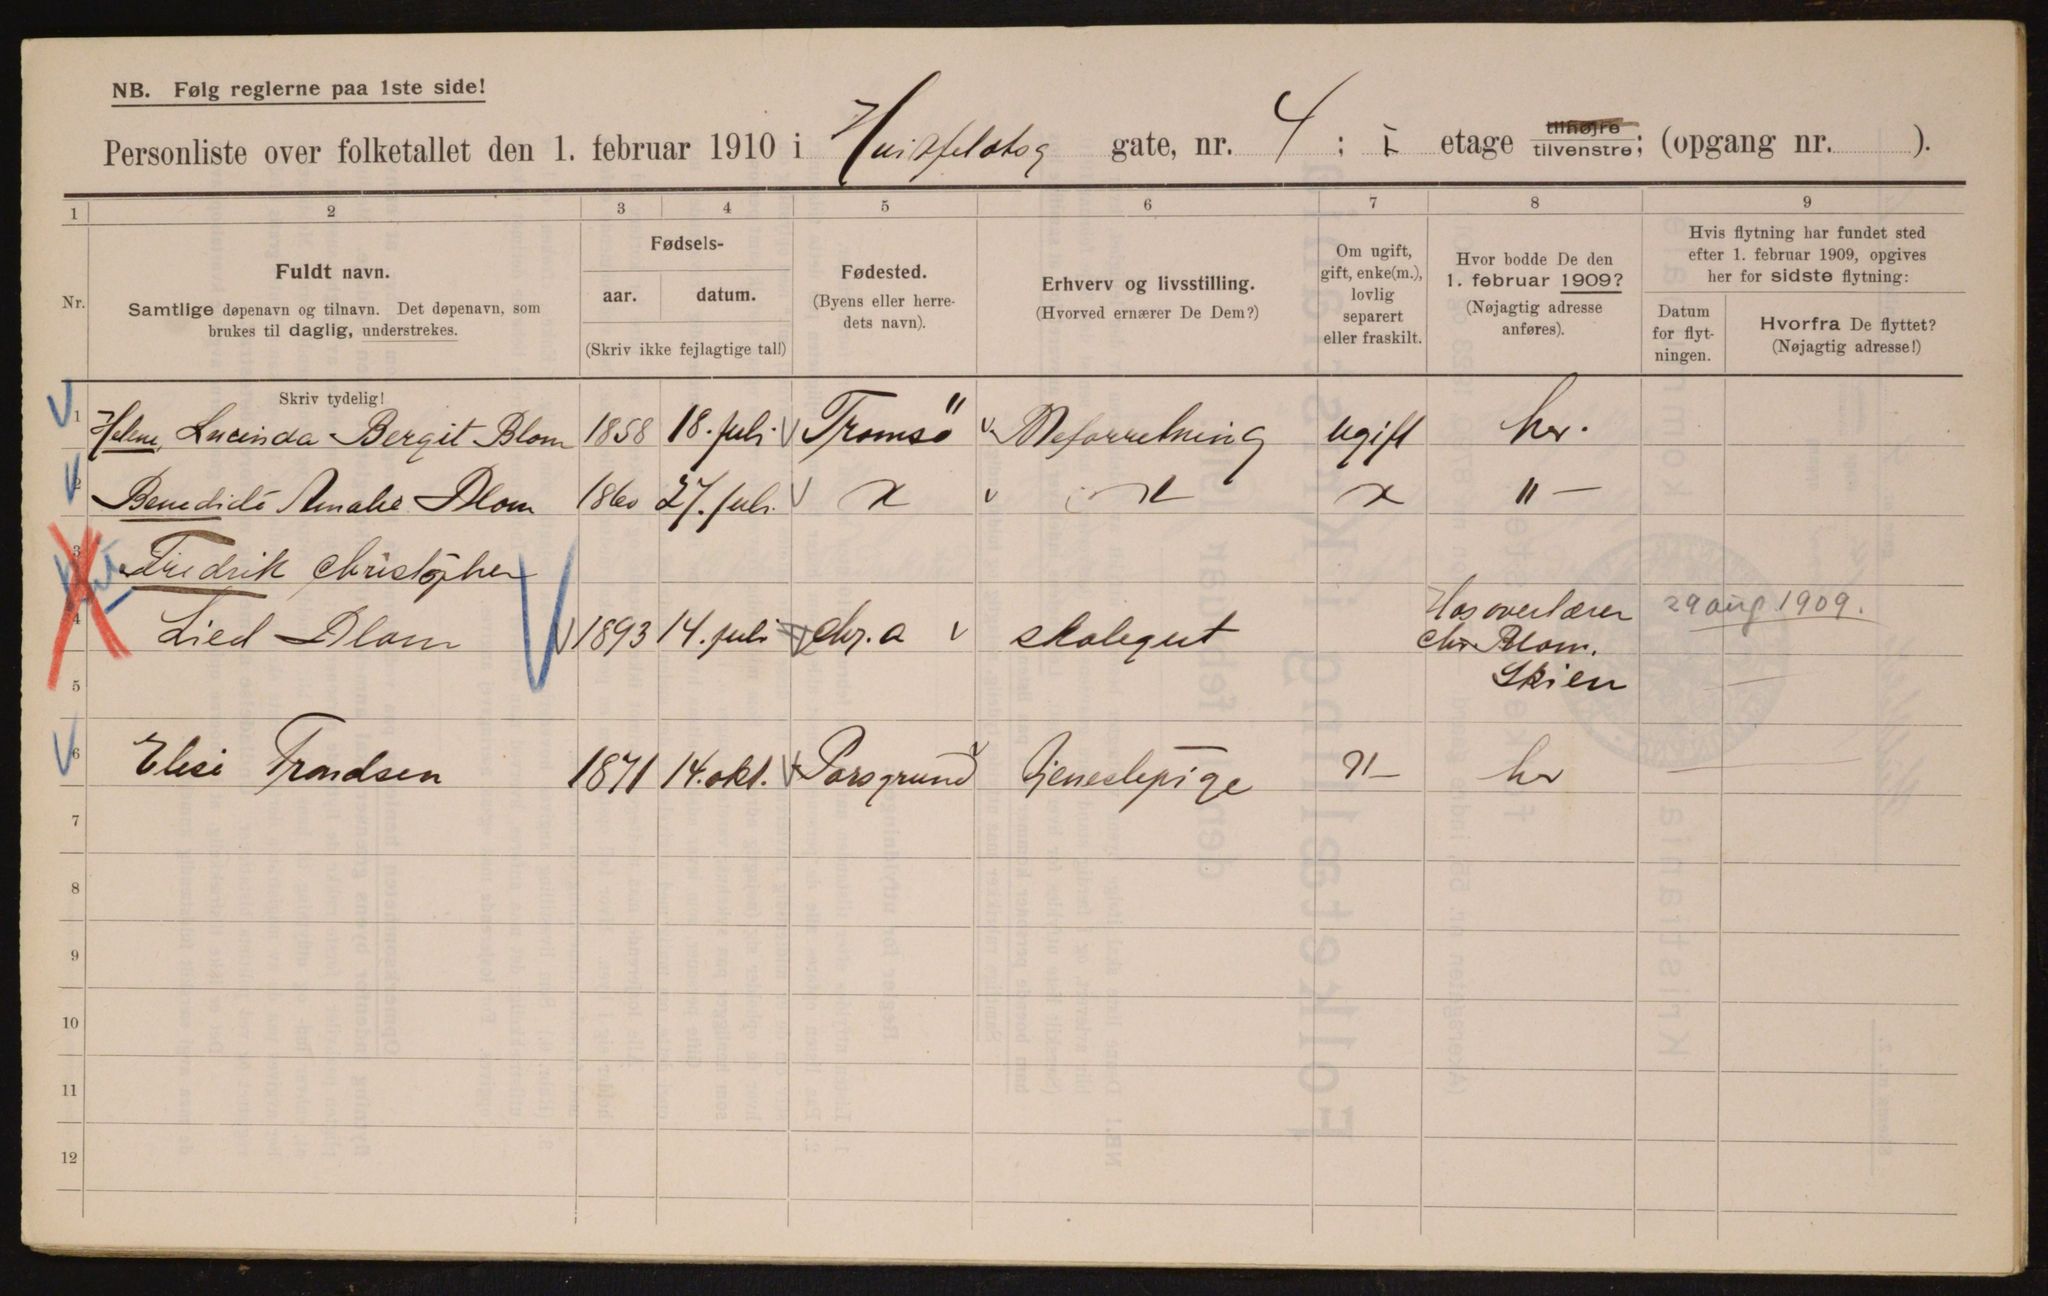 NB. Følg reglerne paa 1ste side!
Personliste over folketallet den 1. februar 1910 i Huitfeldtsg gate, nr. 4 ; I etage tilhøjre tilvenstre; (opgang nr. ).
1 2 3 4 5 6 7 8 9
Nr.
Fuldt navn.
Samtlige døpenavn og tilnavn. Det døpenavn, som
brukes til daglig, understrekes.
Fødsels-
aar. datum.
(Skriv ikke fejlagtige tal!)
Fødested.
(Byens eller herre-
dets navn).
Erhverv og livsstilling.
(Hvorved ernærer De Dem?)
Om ugift,
gift, enke(m.),
lovlig
separert
eller fraskilt.
Hvor bodde De den
1. februar 1909?
(Nøjagtig adresse
anføres).
Hvis flytning har fundet sted
efter 1. februar 1909, opgives
her for sidste flytning:
Datum
for flyt-
ningen.
Hvorfra De flyttet?
(Nøjagtig adresse!)
Skriv tydelig!
1 Helene Lucinda Bergit Blom 1858 18. juli Tromsø " forretning ugift her.
2 Benedicte Amalie Blom 1860 27. juli " —
3 Fredrik Christopher
4 Lied Blom 1893 14. juli Chr.a skolegut Hos overlærer 29 aug 1909.
Chr Blom.
5 Skien
6 Elise Trondsen 1871 14. okt. Porsgrund tjenestepige "— her
7
8
9
10
11
12